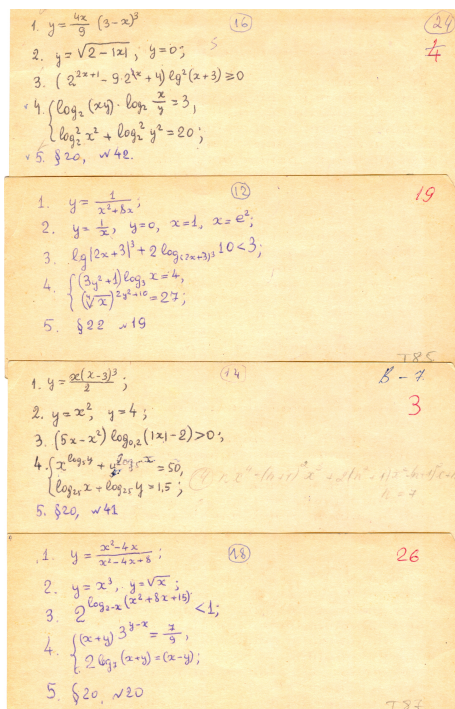 16
24
1. y = 4x/9 (3-x)³
2. y = √(2-|x|); y=0;
3. (2^(2x+1) - 9·2^(x) + 4) lg²(x+3) ≥ 0
4. { log₂(xy)·log₂ x/y = 3,
log₂² x² + log₂² y² = 20;
5. §20, №42.
12
19
1. y = 1/(x²+8x);
2. y = 1/x, y=0, x=1, x=e²;
3. lg|2x+3|³ + 2 log_(2x+3)³ 10 < 3;
4. { (3y²+1) log₃ x = 4,
(ʸ√x)^(2y²+10) = 27;
5. §22 №19
T85
14
В – 7
3
1. y = x(x-3)³/2;
2. y = x², y=4;
3. (5x-x²) log₀,₂(|x|-2) > 0;
4. { x^(log₅y) + y^(log₅x) = 50,
log₂₅x + log₂₅y = 1,5;
5. §20, №41
18
26
1. y = (x²-4x)/(x²-4x+8);
2. y = x³, y=√x;
3. 2^(log_(2-x)(x²+8x+15)) < 1;
4. { (x+y)·3^(y-x) = 7/9,
2 log_y(x+y) = (x-y);
5. §20, №20
T87